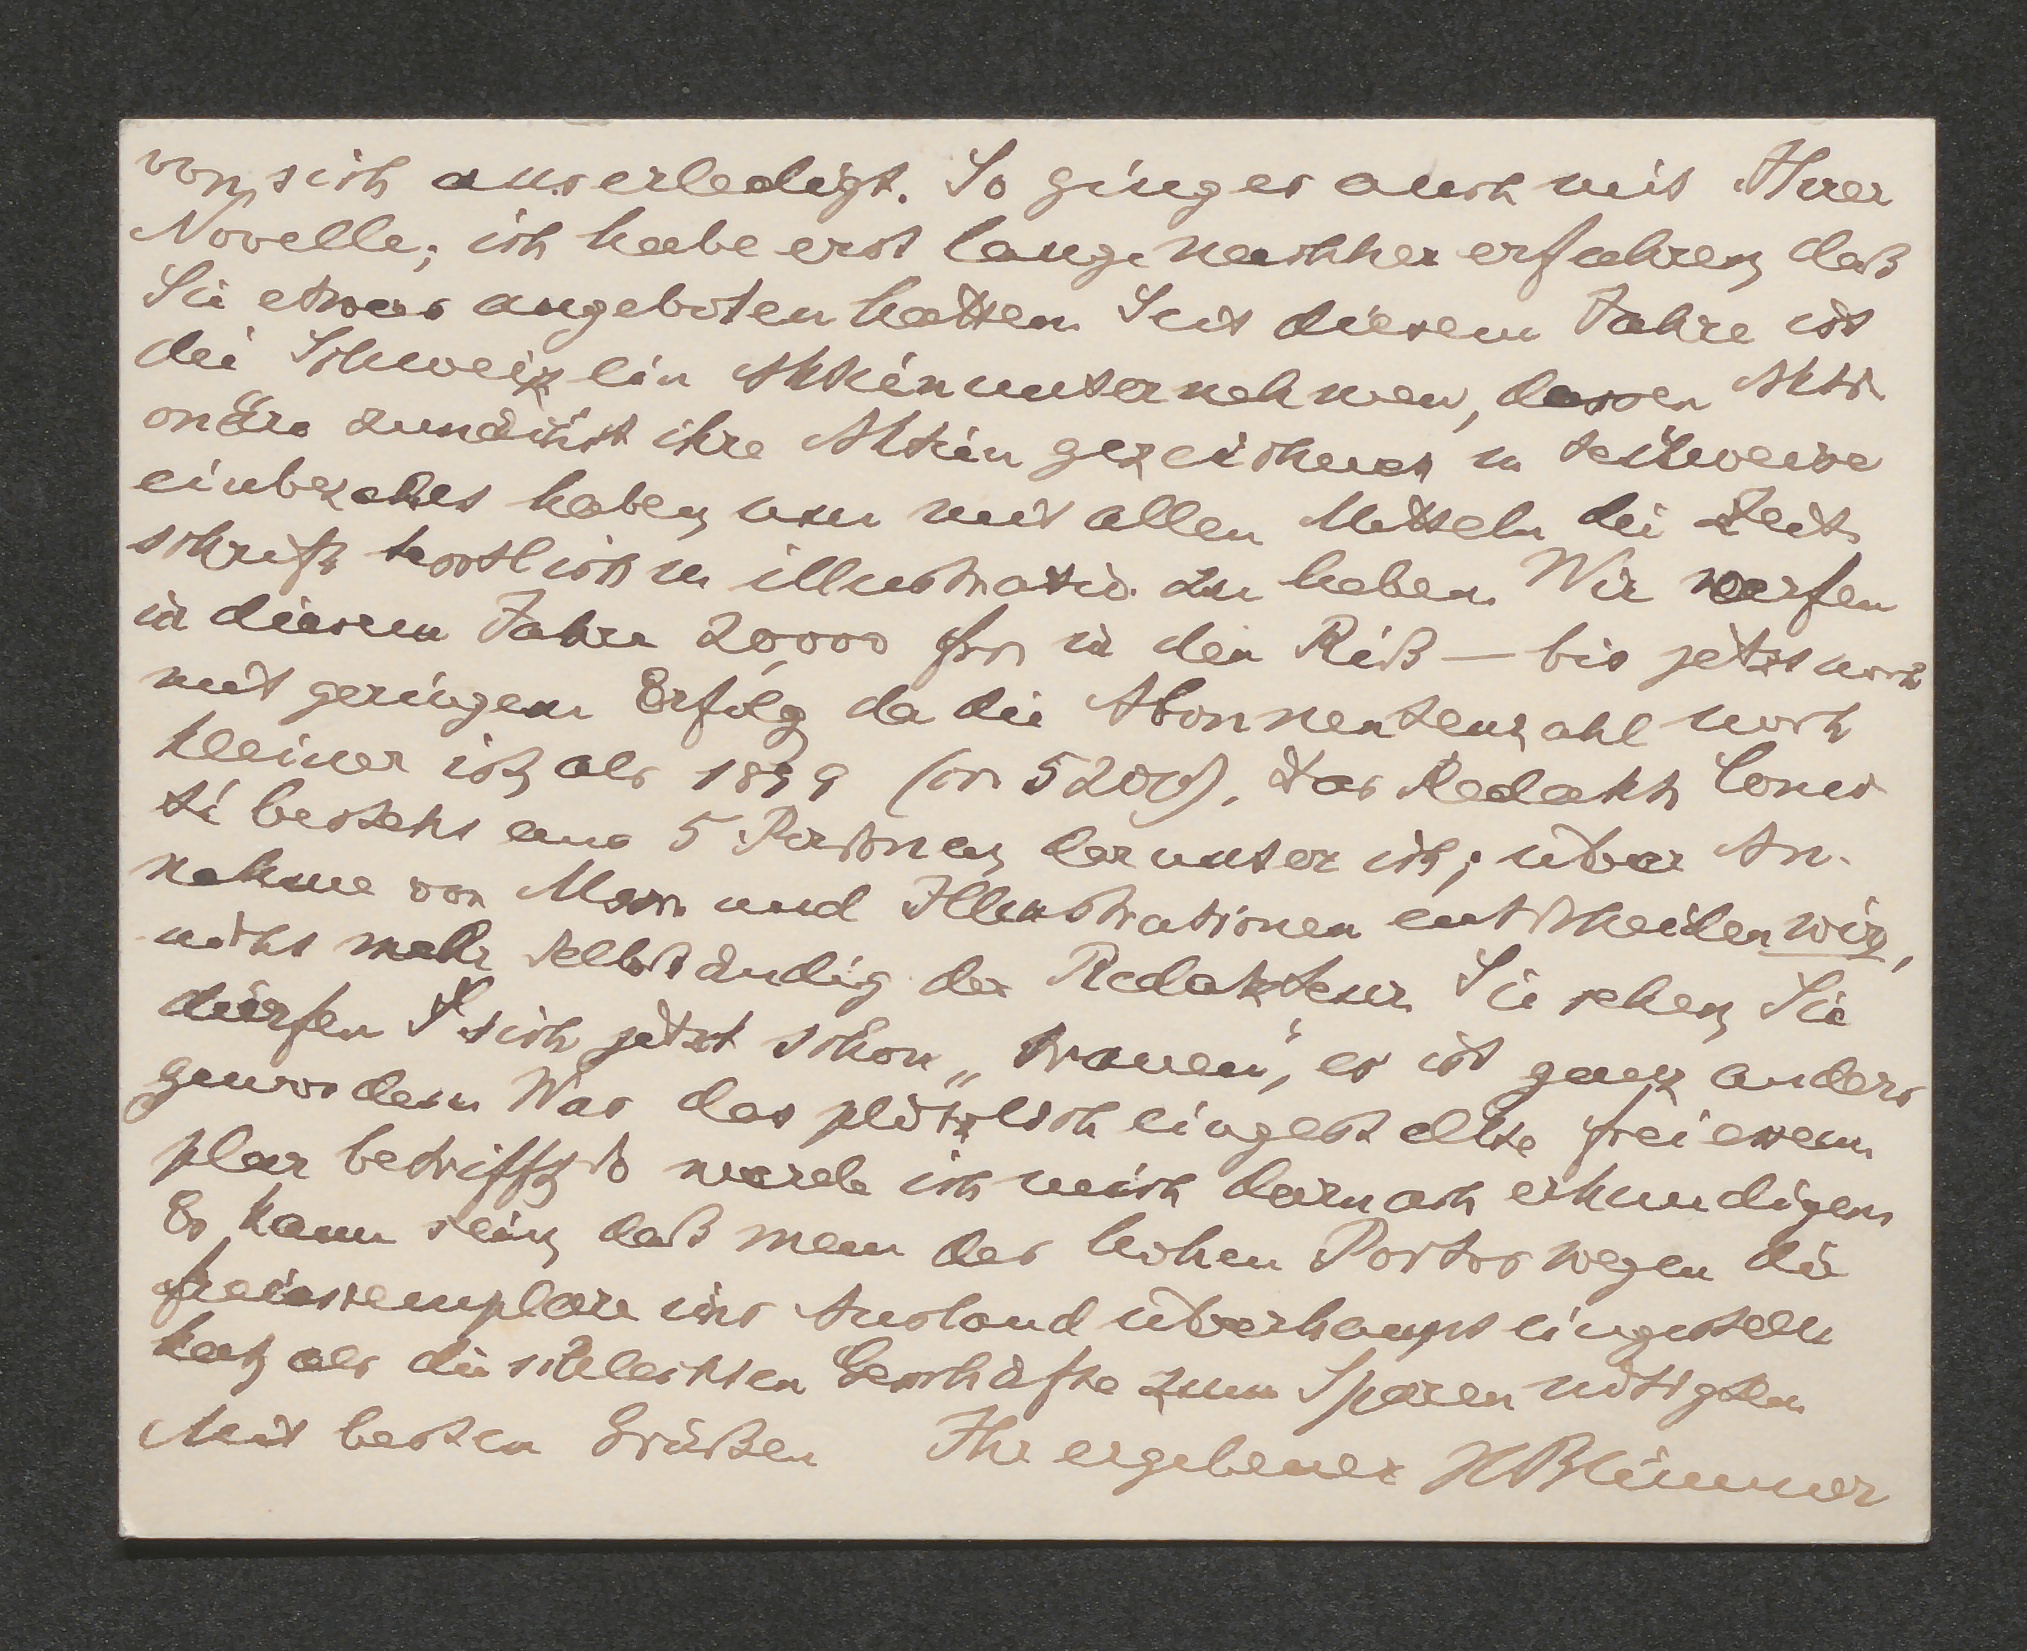 von sich aus erledigt. So ging es auch mit Ihrer
Novelle; ich habe erst lange nachher erfahren, daß
Sie etwas angeboten hatten. Seit diesem Jahre ist
die Schweiz ein Aktienunternehmen, dessen Akti-
onäre zunächst ihre Aktien gezeichnet u. teilweise
einbezahlt haben, um mit allen Mitteln die Zeit-
schrift textlich u. illustrativ zu heben. Wir werfen
in diesem Jahre 20,000 frs in den Riß — bis jetzt noch
mit geringem Erfolg, da die Abonnentenzahl noch
kleiner ist, als 1899 (ca 5200). Das Redakt. Comi-
té besteht aus 5 Personen, darunter ich; über An-
nahme von Mscr. und Illustrationen entscheiden wir,
nicht mehr selbständig der Redakteur. Sie sehen, Sie
dürfen sich jetzt schon „trauen", es ist ganz anders
geworden. Was das plötzlich eingestellte Freiexem-
plar betrifft, so werde ich mich darnach erkundigen.
Es kann sein, daß man des hohen Portos wegen die
Freiexemplare ins Ausland überhaupt eingestellt
hat, als die schlechten Geschäfte zum Sparen nötigten.
Mit besten Grüßen Ihr ergebener H Blümner